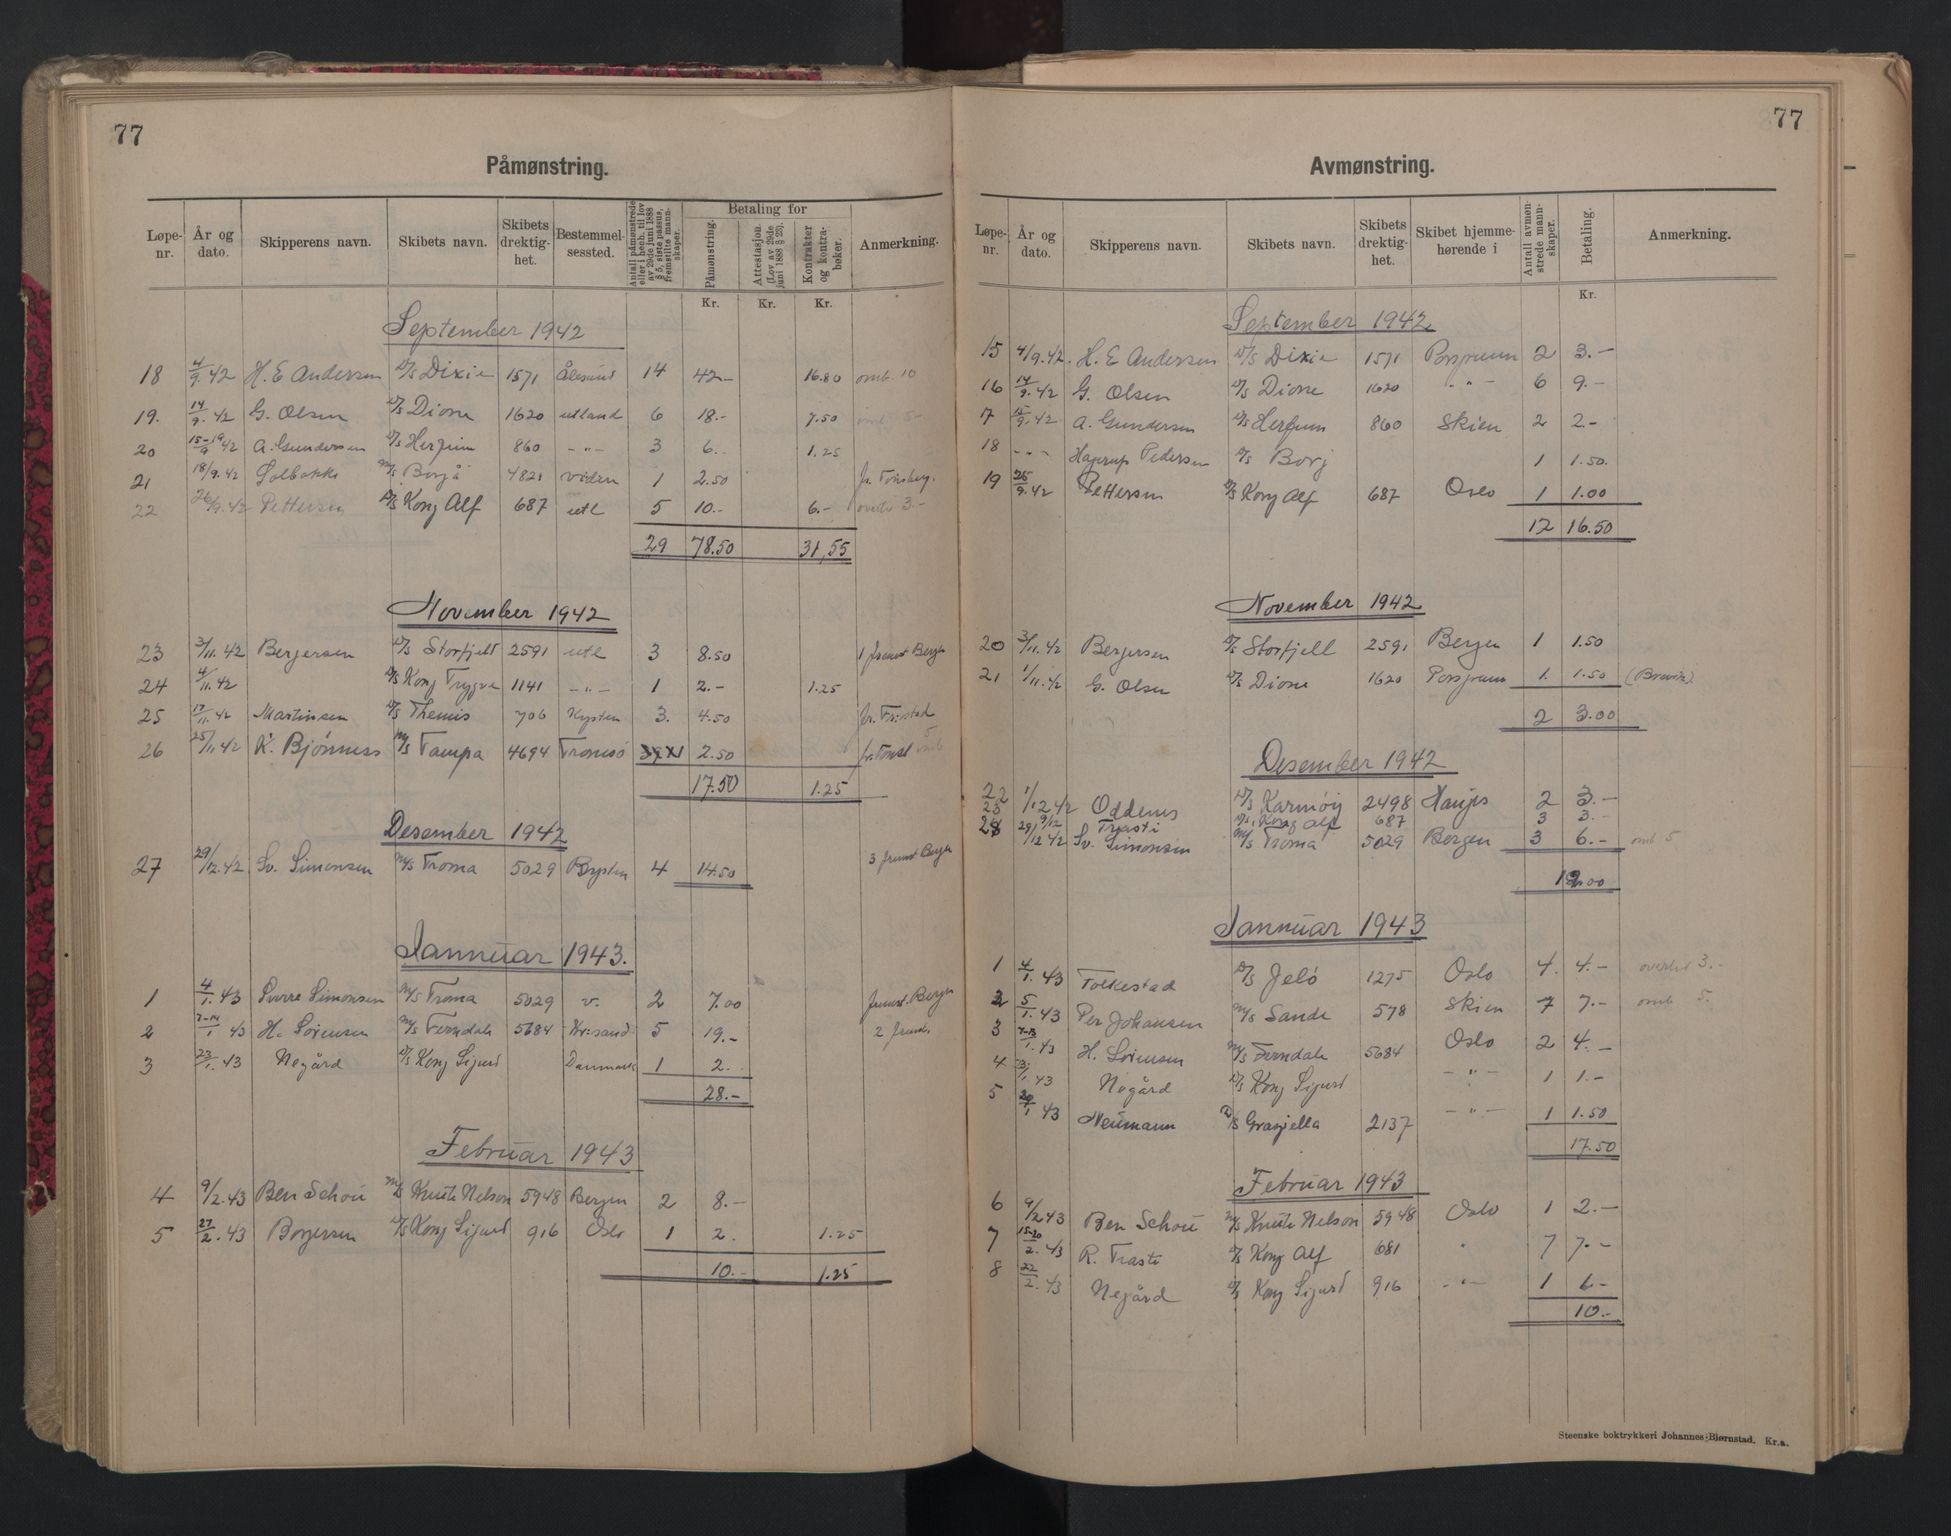 77
Påmønstring.
Løpe-nr. År og dato. Skipperens navn. Skibets navn. Skibets drektig-het. Bestemmel-sessted. Antall påmønstrede eller i henh. til lov av 29de juni 1888 § 5, siste passus, fremstilte mann-skaper. Betaling for Påmønstring. Attestasjon. (Lov av 29de juni 1888 § 23). Kontrakter og kontra-bøker. Anmerkning.
Kr. Kr. Kr.
September 1942
18 4/9.42 H. E Andersen D/S Dixie 1571 Ålesund 14 42- 16.80 omb. 10
19. 14/9.42 G. Olsen D/S Dione 1620 utland 6 18.- 7.50 omb 5-
20 15-19/9 42 A. Gundersen D/S Herfinn 860 -"- 3 6.- 1.25
21 18/9.42 Solbakke M/S Borgå 4821 viden 1 2.50 fr. Tønsberg.
22 26/9.42 Pettersen D/S Kong Alf 687 utl 5 10.- 6.- overti 3.-
29 78.50 31,55
November 1942
23 3/11.42 Bergersen D/S Storfjell 2591 utl 3 8.50 1 fremst Bergen
24 4/11.42 D/S Kong Trygve 1141 -"- 1 2.- 1.25
25 17/11.42 Martinsen D/S Themis 706 Kysten 3. 4.50 fr. Fr:stad
26 25/11.42 K. Bjønness M/S Tampa 4694 Tromsø 1 2.50 fr. Tønsb omb 5
17.50 1.25
Desember 1942
27 29/12.42 Sv. Simonsen M/S Troma 5029 4 14.50 3 fremst Bergen
Jannuar 1943.
1 4/1.43 Sverre Simonsen M/S Troma 5029 v. 2 7.00 fremst. Bergen
2 7-14/1 43 H. Sørensen M/S Ferndale 5684 Kr:sand 5 19.- 2 fremst.
3 23/1.43 Negård D/S Kong Sigurd Danmark 1 2.-
28.-
Februar 1943
4 9/2.43 Ben Schou M/S Knute Nelson 5948 Bergen 2 8.-
5 27/2.43 Borgersen D/S Kong Sigurd 916 Oslo 1 2. 1.25
10.- 1.25
77
Avmønstring.
Løpe-nr. År og dato. Skipperens navn. Skibets navn. Skibets drektig-het. Skibet hjemme-hørende i Antall avmøn-strede mann-skaper. Betaling. Anmerkning.
Kr.
September 1942
15 4/9.42. H. E Andersen D/S Dixie 1571 Porsgrunn 2 3.-
16 14/9.42 G. Olsen D/S Dione 1620 -"- 6 9.-
17 15/9.42 A. Gundersen D/S Herfinn 860 Skien 2 2.-
18 -"- Hagerup Pedersen D/S Borg 1 1.50.
19 25/9.42 Pettersen D/S Kong Alf 687 Oslo 1 1.00
12 16.50
November 1942
20 3/11.42 Bergersen D/S Storfjell 2591 Bergen 1 1.50
21 1/11.42 G. Olsen D/S Dione 1620 Porsgrunn 1. 1.50 (Brevik)
2 3.00
Desember 1942
22 1/12 42 Oddenes D/S Karmøy 2498 Hauges 2 3.-
23 29/12 Trasti D/S Kong Alf 687 3 3.-
28 29/12 42 Sv. Simonsen M/S Troma 5029 Bergen 3 6.- omb 5
12.00
Jannuar 1943
1 4/1.43 Folkestad D/S Jelø 1275 Oslo 4. 4.- overtid 3.-
2 5/1.43 Per Johansen M/S Sande 578 Skien 7 7.- omb 5.
3 7-13/1.43 H. Sørensen M/S Ferndale 5684 Oslo 2 4.-
4 43 Negård D/S Kong Sigurd -"- 1 1.-
5 20/1 43 Neumann D/S Graziella 2137 -"- 1 1.50
17.50
Februar 1943
6 9/2 43 Ben Schou M/S Knute Nelson 5948 Oslo 1 2.-
7 15-20/2. 43 R. Trasti D/S Kong Alf 681 " 7 7.-
8 22/2.43 Negård D/S Kong Sigurd 916 -"- 1 1.-
10.-
Steenske boktrykkeri Johannes Bjørnstad. Kr.a.